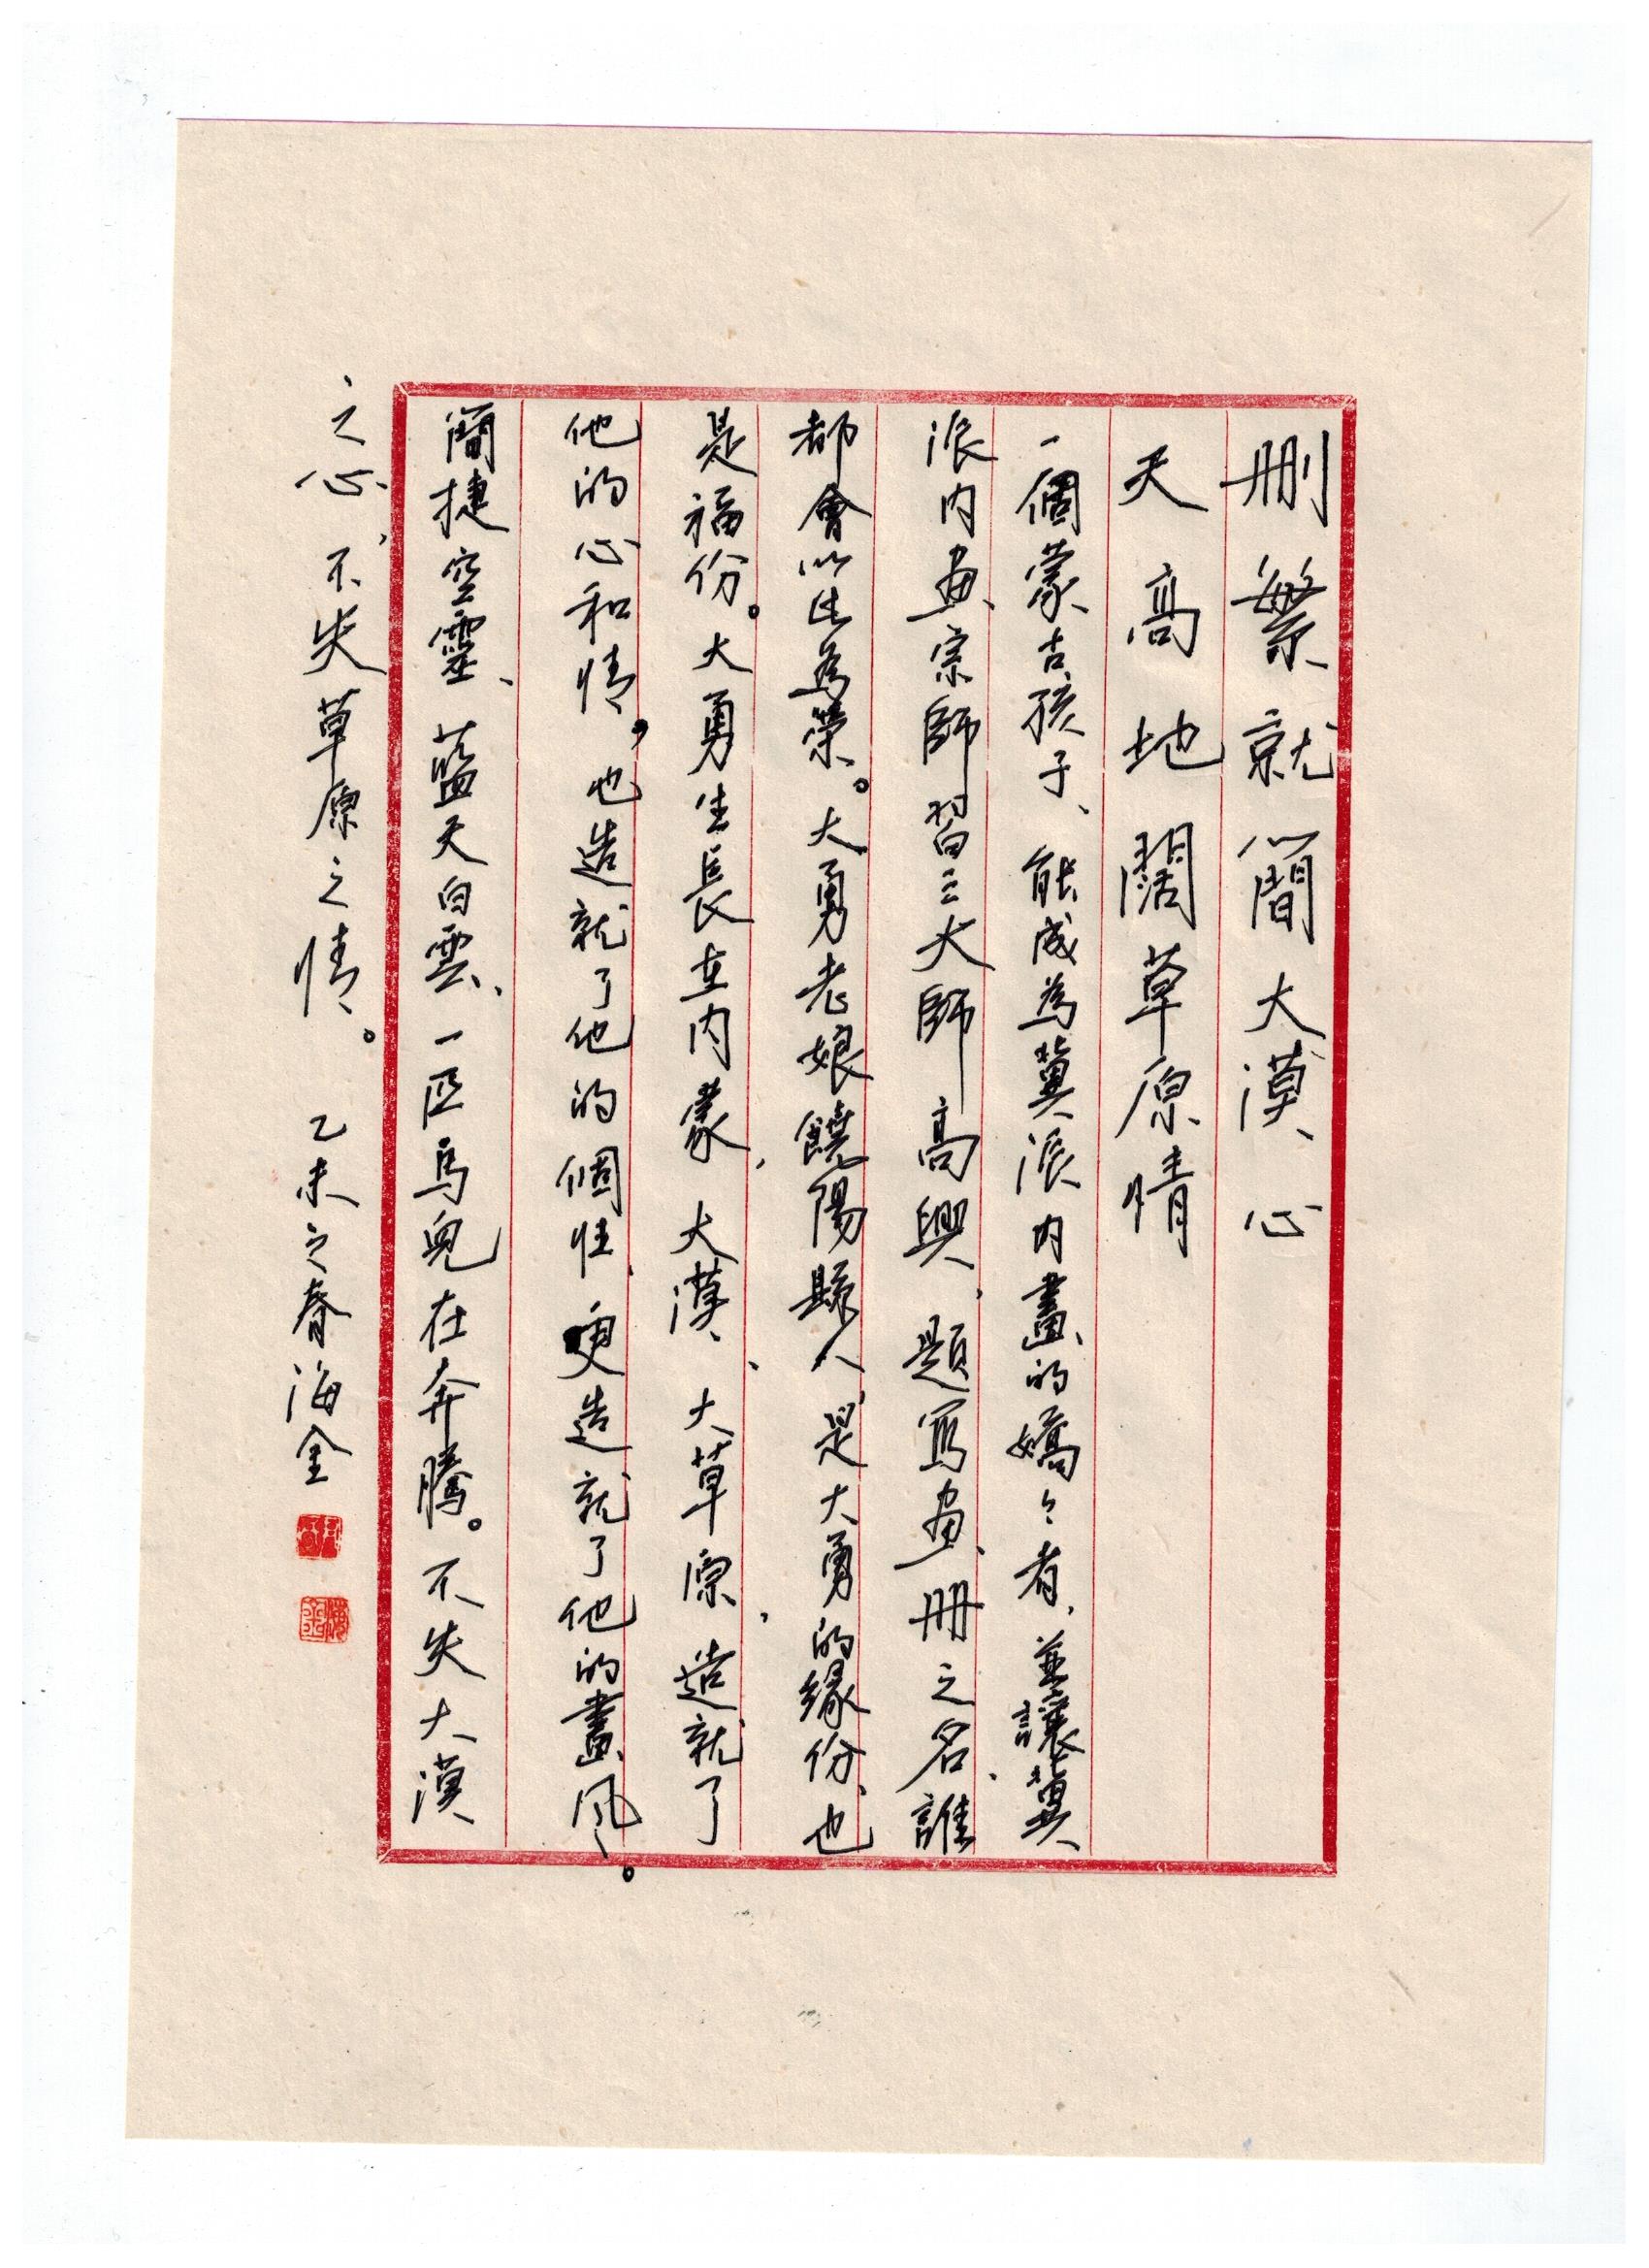 刪繁就簡大漠心
天高地闊草原情
一個蒙古孩子、能成為冀派内畫的嬌々者,並讓冀
派内画宗師習三大師高興、題寫画册之名、誰
都會以此為榮。大勇老娘饒陽縣人,是大勇的緣份、也
是福份。大勇生長在内蒙,大漠、大草原,造就了
他的心和情。也造就了他的個性、更造就了他的畫风。
簡捷空靈、藍天白雲、一匹馬兒在奔騰。不失大漠
之心,不失草原之情。 乙未之春海金